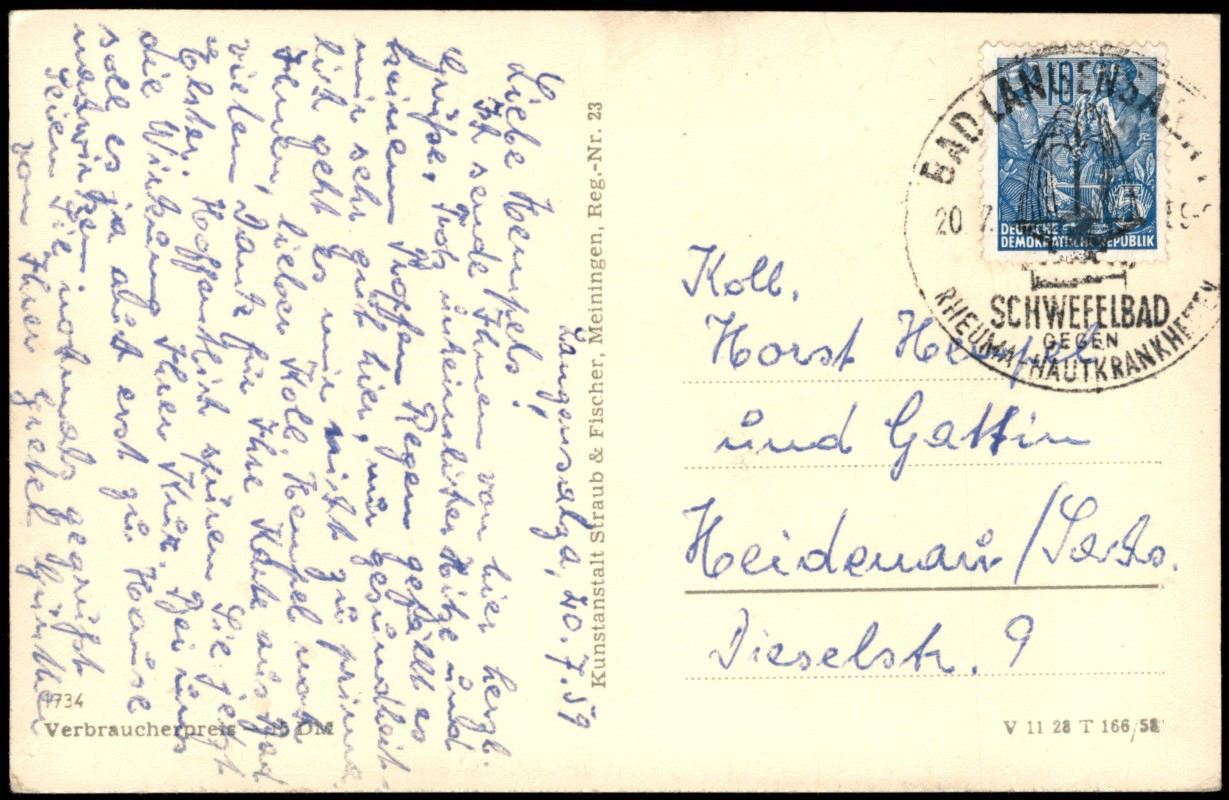 Langensalza, 20.7.59
Liebe Hempels!
Ich sende Ihnen von hier herzl.
Grüße. Trotz unheimlicher Hitze und
keinem Tropfen Regen gefällt es
mir sehr gut hier, nur gesundheit-
lich geht es mir nicht zu prima.
Ihnen, lieber Koll. Hempel noch
vielen Dank für Ihre Karte aus Bad
Elster. Hoffentlich spüren Sie jetzt
die Wirkung Ihrer Kur. Bei uns
soll es ja alles erst zu Hause
nachwirken.
Seien Sie nochmals gegrüßt
von Ihrer Günther
Kunstanstalt Straub & Fischer, Meiningen, Reg.-Nr. 23
1734
Verbraucherpreis 15 DM
10
DEUTSCHE
DEMOKRATISCHE REPUBLIK
BAD LANGENSALZA
20 7.
SCHWEFELBAD
GEGEN
RHEUMA HAUTKRANKHEITEN
Koll.
Horst Hempel
und Gattin
Heidenau/Sachs.
Dieselstr. 9
V 11 28 T 166/58